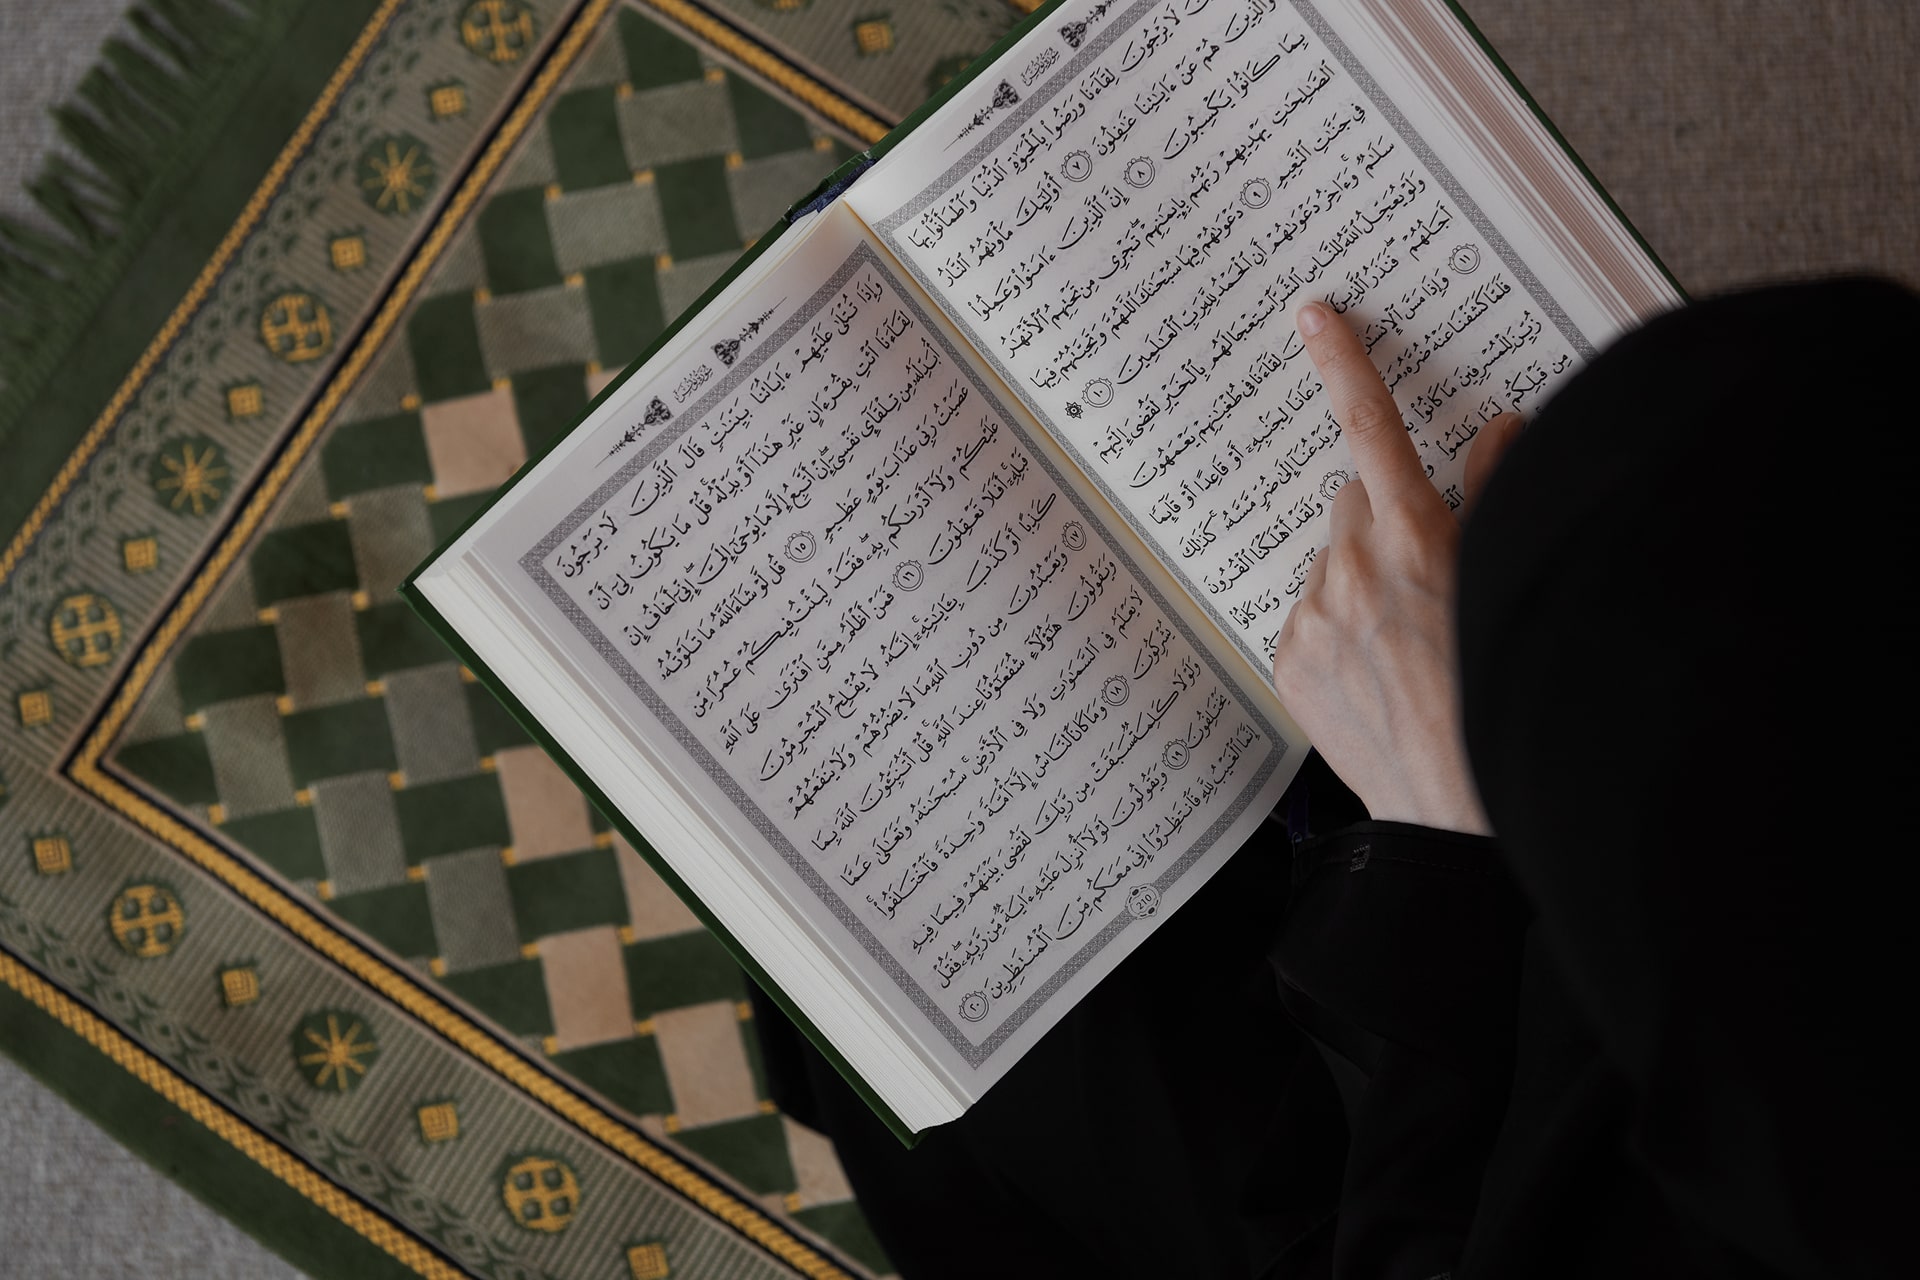 سُورَةُ يُونُسَ
لَا يَرْجُونَ لِقَآءَنَا وَرَضُوا۟ بِٱلْحَيَوٰةِ ٱلدُّنْيَا وَٱطْمَأَنُّوا۟ بِهَا
وَٱلَّذِينَ هُمْ عَنْ ءَايَٰتِنَا غَٰفِلُونَ ٧ أُو۟لَٰٓئِكَ مَأْوَىٰهُمُ ٱلنَّارُ
بِمَا كَانُوا۟ يَكْسِبُونَ ٨ إِنَّ ٱلَّذِينَ ءَامَنُوا۟ وَعَمِلُوا۟
ٱلصَّٰلِحَٰتِ يَهْدِيهِمْ رَبُّهُم بِإِيمَٰنِهِمْ ۖ تَجْرِى مِن تَحْتِهِمُ ٱلْأَنْهَٰرُ
فِى جَنَّٰتِ ٱلنَّعِيمِ ٩ دَعْوَىٰهُمْ فِيهَا سُبْحَٰنَكَ ٱللَّهُمَّ وَتَحِيَّتُهُمْ فِيهَا
سَلَٰمٌ ۚ وَءَاخِرُ دَعْوَىٰهُمْ أَنِ ٱلْحَمْدُ لِلَّهِ رَبِّ ٱلْعَٰلَمِينَ ١٠ ۞
وَلَوْ يُعَجِّلُ ٱللَّهُ لِلنَّاسِ ٱلشَّرَّ ٱسْتِعْجَالَهُم بِٱلْخَيْرِ لَقُضِىَ إِلَيْهِمْ
أَجَلُهُمْ ۖ فَنَذَرُ ٱلَّذِينَ لِقَآءَنَا فِى طُغْيَٰنِهِمْ يَعْمَهُونَ
١١ وَإِذَا مَسَّ ٱلْإِنسَٰنَ دَعَانَا لِجَنۢبِهِۦٓ أَوْ قَاعِدًا أَوْ قَآئِمًا
فَلَمَّا كَشَفْنَا عَنْهُ ضُرَّهُۥ لَّمْ يَدْعُنَآ إِلَىٰ ضُرٍّ مَّسَّهُۥ ۚ كَذَٰلِكَ
زُيِّنَ لِلْمُسْرِفِينَ مَا كَانُوا۟ ١٢ وَلَقَدْ أَهْلَكْنَا ٱلْقُرُونَ
مِن قَبْلِكُمْ لَمَّا ظَلَمُوا۟ وَمَا كَانُوا۟
سُورَةُ يُونُسَ
وَإِذَا تُتْلَىٰ عَلَيْهِمْ ءَايَاتُنَا بَيِّنَٰتٍ ۙ قَالَ ٱلَّذِينَ لَا يَرْجُونَ
لِقَآءَنَا ٱئْتِ بِقُرْءَانٍ غَيْرِ هَٰذَآ أَوْ بَدِّلْهُ ۚ قُلْ مَا يَكُونُ لِىٓ أَنْ
أُبَدِّلَهُۥ مِن تِلْقَآئِ نَفْسِىٓ ۖ إِنْ أَتَّبِعُ إِلَّا مَا يُوحَىٰٓ إِلَىَّ ۖ إِنِّىٓ أَخَافُ إِنْ
عَصَيْتُ رَبِّى عَذَابَ يَوْمٍ عَظِيمٍ ١٥ قُل لَّوْ شَآءَ ٱللَّهُ مَا تَلَوْتُهُۥ
عَلَيْكُمْ وَلَآ أَدْرَىٰكُم بِهِۦ ۖ فَقَدْ لَبِثْتُ فِيكُمْ عُمُرًا مِّن
قَبْلِهِۦٓ ۚ أَفَلَا تَعْقِلُونَ ١٦ فَمَنْ أَظْلَمُ مِمَّنِ ٱفْتَرَىٰ عَلَى ٱللَّهِ
كَذِبًا أَوْ كَذَّبَ بِـَٔايَٰتِهِۦٓ ۚ إِنَّهُۥ لَا يُفْلِحُ ٱلْمُجْرِمُونَ
١٧ وَيَعْبُدُونَ مِن دُونِ ٱللَّهِ مَا لَا يَضُرُّهُمْ وَلَا يَنفَعُهُمْ
وَيَقُولُونَ هَٰٓؤُلَآءِ شُفَعَٰٓؤُنَا عِندَ ٱللَّهِ ۚ قُلْ أَتُنَبِّـُٔونَ ٱللَّهَ بِمَا
لَا يَعْلَمُ فِى ٱلسَّمَٰوَٰتِ وَلَا فِى ٱلْأَرْضِ ۚ سُبْحَٰنَهُۥ وَتَعَٰلَىٰ عَمَّا
يُشْرِكُونَ ١٨ وَمَا كَانَ ٱلنَّاسُ إِلَّآ أُمَّةً وَٰحِدَةً فَٱخْتَلَفُوا۟ ۚ
وَلَوْلَا كَلِمَةٌ سَبَقَتْ مِن رَّبِّكَ لَقُضِىَ بَيْنَهُمْ فِيمَا فِيهِ
يَخْتَلِفُونَ ١٩ وَيَقُولُونَ لَوْلَآ أُنزِلَ عَلَيْهِ ءَايَةٌ مِّن رَّبِّهِۦ ۖ فَقُلْ
إِنَّمَا ٱلْغَيْبُ لِلَّهِ فَٱنتَظِرُوٓا۟ إِنِّى مَعَكُم مِّنَ ٱلْمُنتَظِرِينَ ٢٠
210